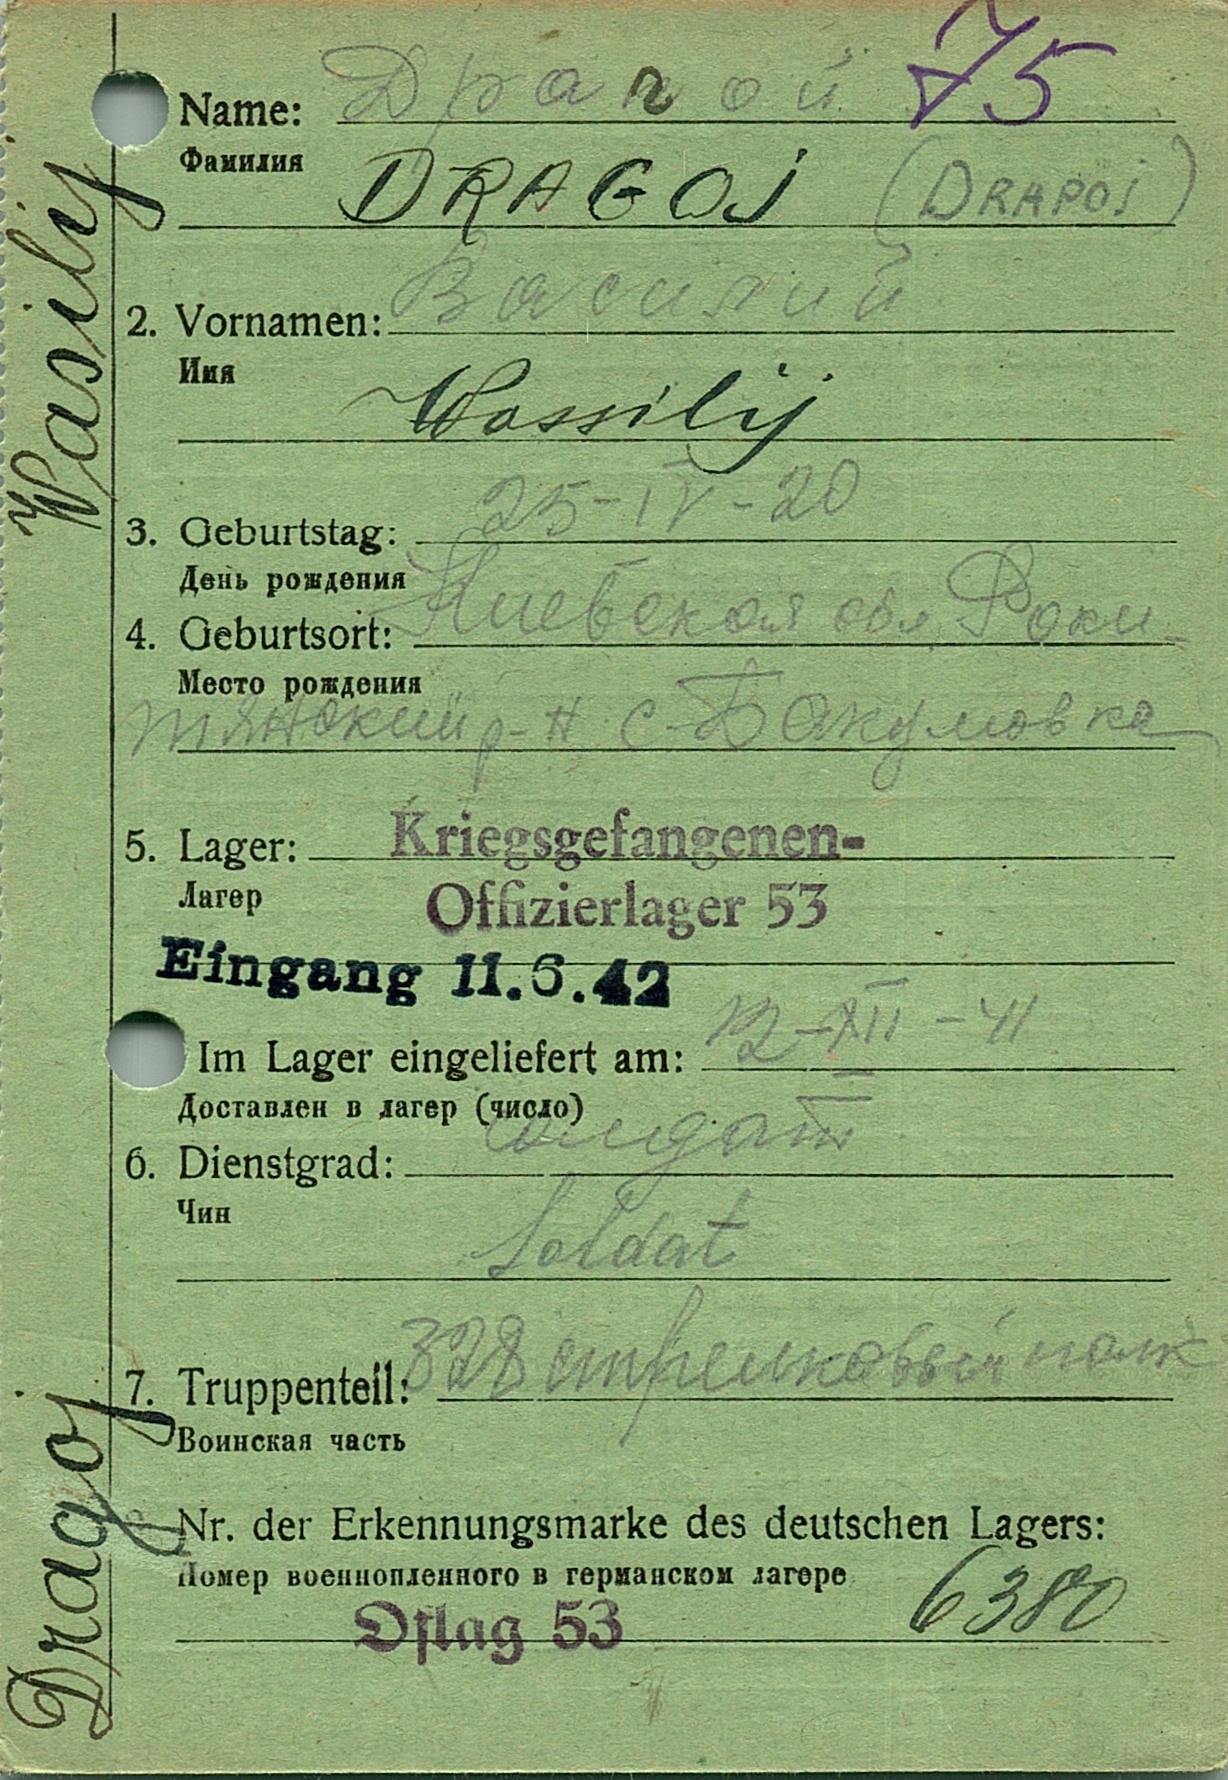 75
Name: Драгой
Фамилия
DRAGOJ (DRAPOJ)
2. Vornamen: Василий
Имя
Wassilij
3. Geburtstag: 25-IV-20
День рождения
4. Geburtsort: Киевская обл Роки-
Место рождения
тянский р-н с. Бакумовка
5. Lager: Kriegsgefangenen-
Лагер
Offizierlager 53
Eingang 11.6.42
Im Lager eingeliefert am: 12-XII-41
Доставлен в лагер (число)
6. Dienstgrad: солдат
Чин
Soldat
7. Truppenteil: 328 стрелковый полк
Воинская часть
Nr. der Erkennungsmarke des deutschen Lagers:
Номер военнопленного в германском лагере
Oflag 53 6380
Dragoj Wasilij